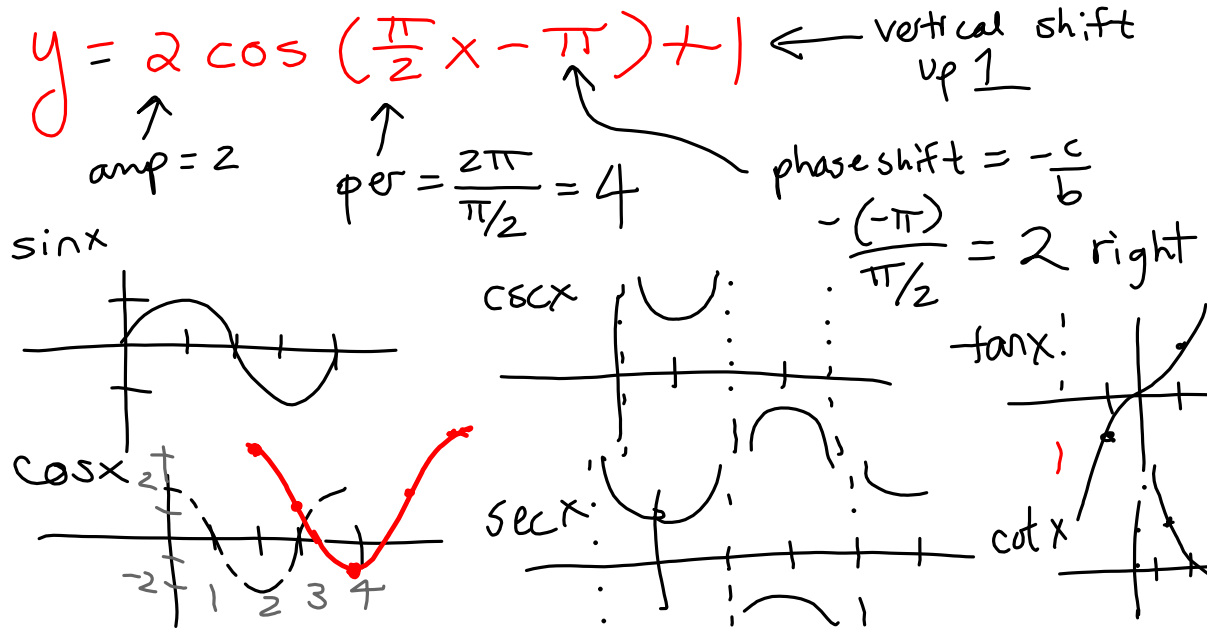 y = 2 cos (π/2 x - π) + 1 ← vertical shift
up 1
amp = 2
per = 2π / π/2 = 4
phase shift = -c/b
-(-π) / π/2 = 2 right
sinx
cscx
tanx
cosx
2
-2
1 2 3 4
secx
cotx